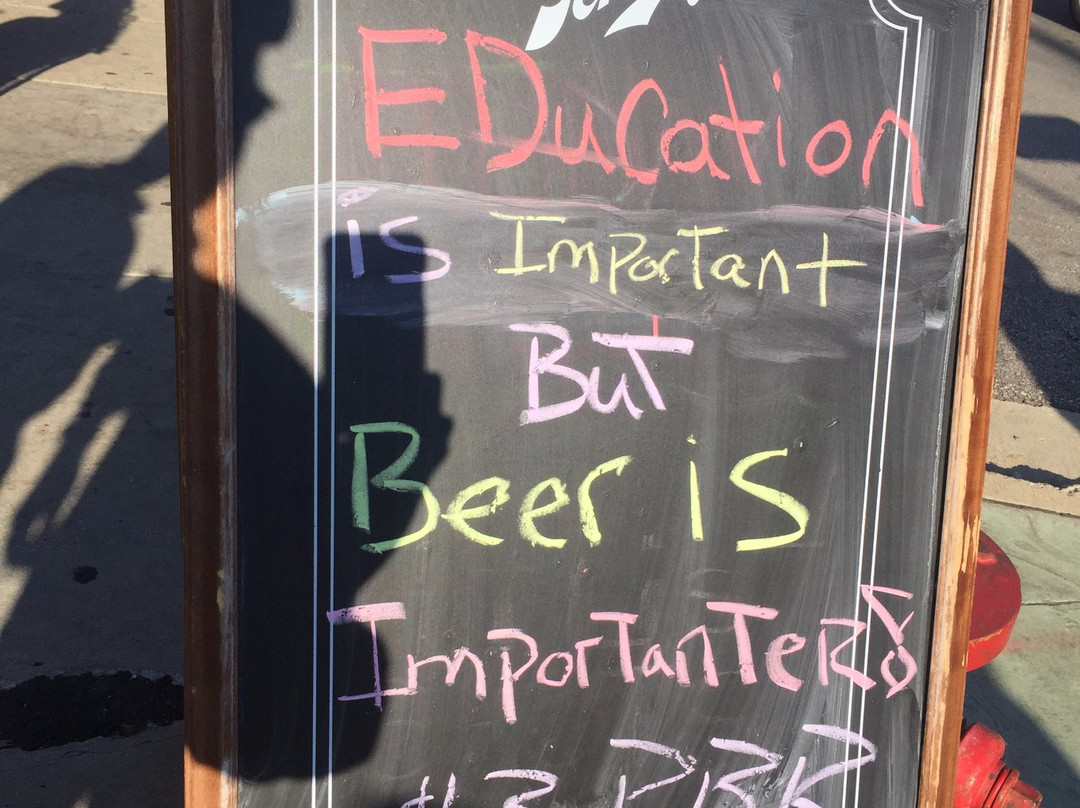 EDucation
is Important
But
Beer is
ImporTanTeR